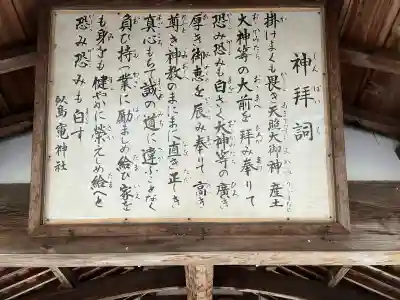 神拝詞
掛けまくも畏き天照大御神産土
大神等の大前を拝み奉りて
恐み恐みも白さく大神等の廣き
厚き御恵を辱み奉りて高き
尊き神教のまにまに直き正しき
真心もちて誠の道に違ふことなく
負ひ持つ業に励ましめ給ひ家をも
身をも健やかに栄えしめ給へと
恐み恐みも白す
竈神社